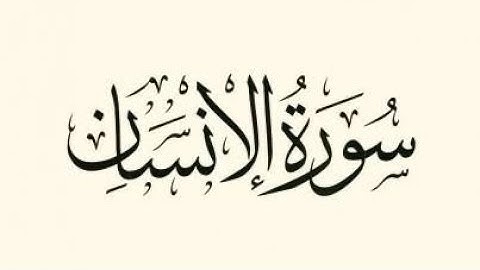 سُورَةُ الإِنْسَانِ